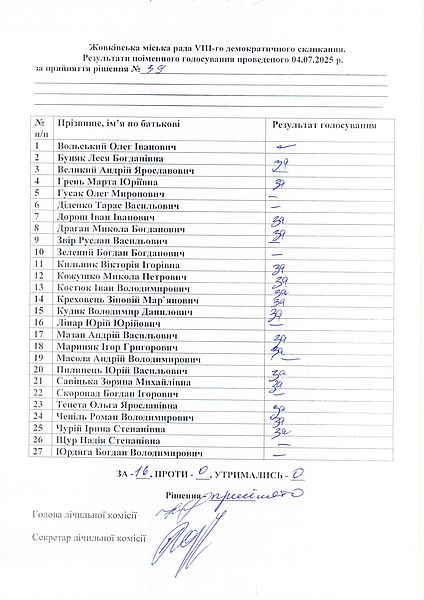 Жовківська міська рада VIII-го демократичного скликання.
Результати поіменного голосування проведеного 04.07.2025 р.
за прийняття рішення № 39
№ п/п Прізвище, ім’я по батькові Результат голосування
1 Вольський Олег Іванович –
2 Буняк Леся Богданівна за
3 Великий Андрій Ярославович –
4 Грень Марта Юріївна за
5 Гусак Олег Миронович –
6 Діденко Тарас Васильович –
7 Дорош Іван Іванович за
8 Драган Микола Богданович за
9 Звір Руслан Васильович –
10 Зелений Богдан Богданович –
11 Кильник Вікторія Ігорівна за
12 Кожушко Микола Петрович за
13 Костюк Іван Володимирович за
14 Креховець Зіновій Мар`янович за
15 Кудик Володимир Данилович за
16 Лінар Юрій Юрійович –
17 Мазан Андрій Васильович за
18 Мариняк Ігор Григорович за
19 Масола Андрій Володимирович –
20 Пилипець Юрій Васильович за
21 Савіцька Зоряна Михайлівна за
22 Скоропад Богдан Ігорович –
23 Тенета Ольга Ярославівна за
24 Чепіль Роман Володимирович за
25 Чурій Ірина Степанівна за
26 Щур Надія Степанівна –
27 Юрдига Богдан Володимирович –
ЗА - 16, ПРОТИ - 0, УТРИМАЛИСЬ - 0
Рішення - прийнято
Голова лічильної комісії
Секретар лічильної комісії